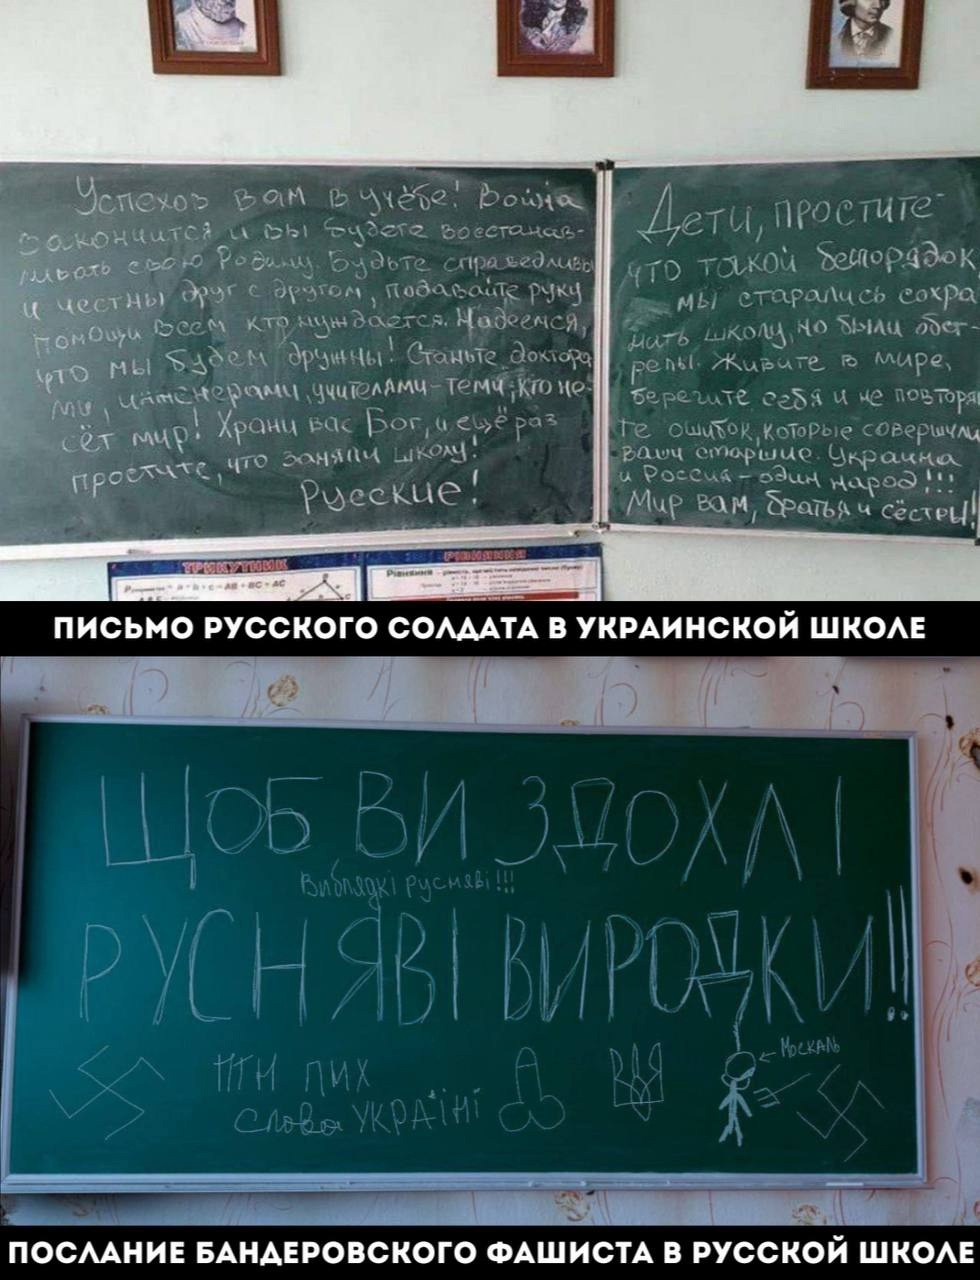 Успехов вам в учёбе! Война
закончится и вы будете восстанав-
ливать свою Родину. Будьте справедливы
и честны друг с другом, подавайте руку
помощи всем кто нуждается. Надеемся,
что мы будем дружны! Станьте доктора-
ми, инженерами, учителями-теми, кто не-
сёт мир! Храни вас Бог, и ещё раз
простите, что заняли школу!
Русские!
Дети, простите
что такой беспорядок
мы старались сохра
нить школу, но были обст
релы. Живите в мире,
берегите себя и не повторяй
те ошибок, которые совершили
ваши старшие. Украина
и Россия-один народ!!!
Мир вам, братья и сёстры!
ТРИКУТНИК
РІВНЯННЯ
Рівняння
ПИСЬМО РУССКОГО СОЛДАТА В УКРАИНСКОЙ ШКОЛЕ
ЩОБ ВИ ЗДОХЛІ
Виблядкі русняві!!!
РУСНЯВІ ВИРОДКИ!!
ПТН ПИХ
слова УКРАїНі
← МОСКАЛЬ
ПОСЛАНИЕ БАНДЕРОВСКОГО ФАШИСТА В РУССКОЙ ШКОЛЕ